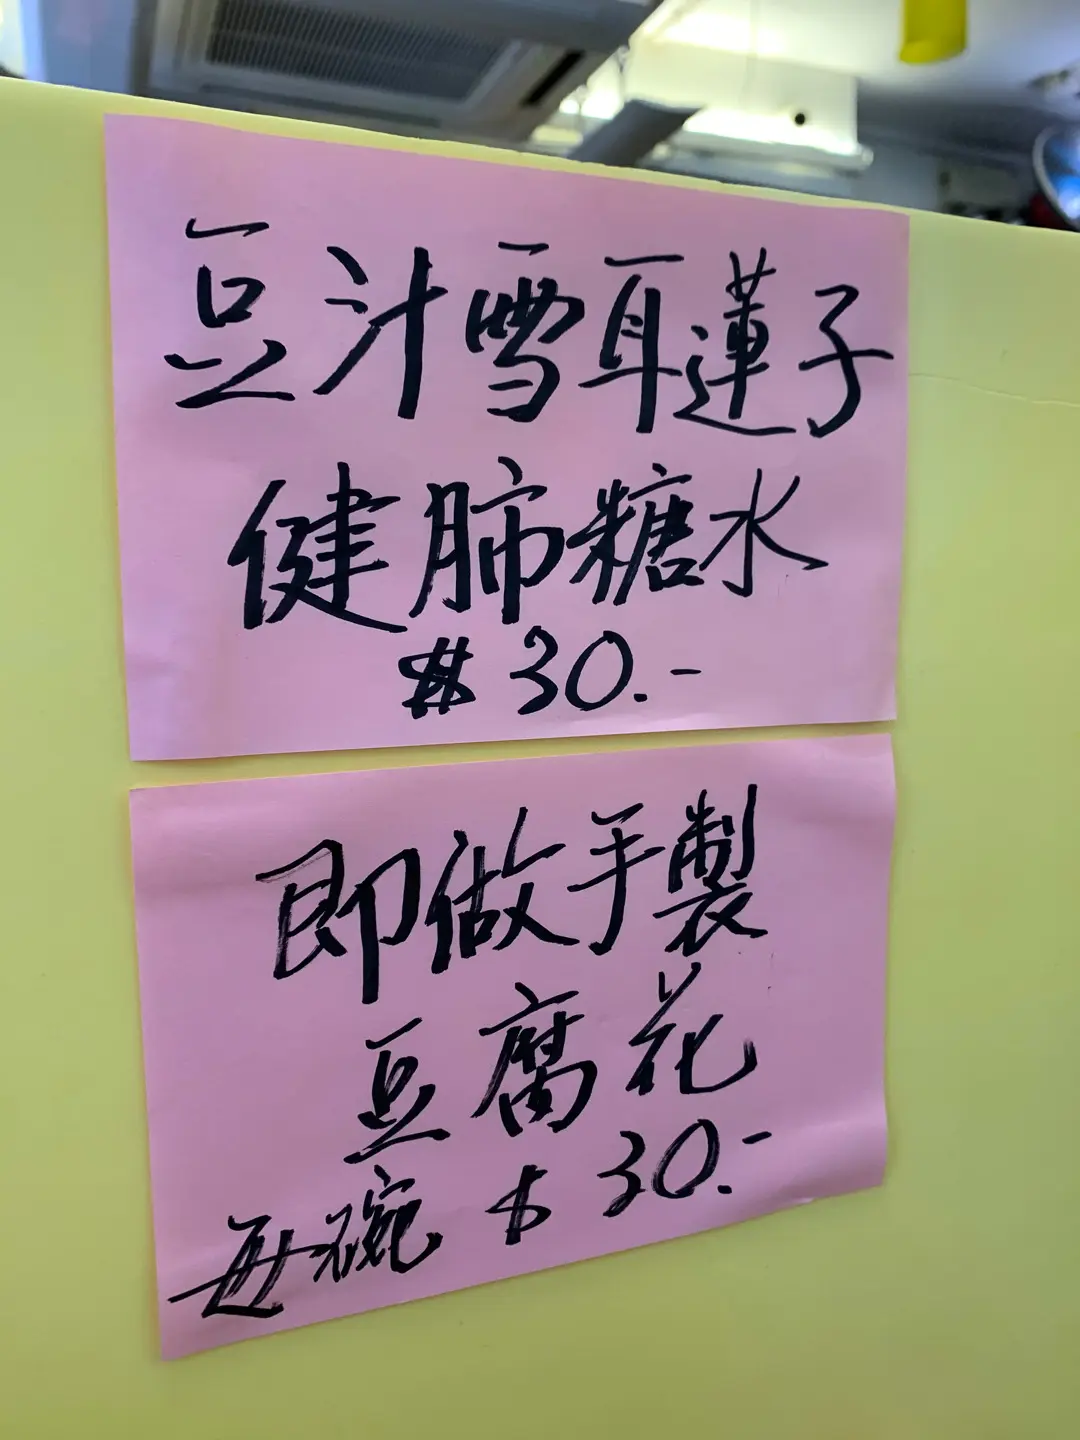 豆汁雪耳蓮子
健肺糖水
$30.-
即做手製
豆腐花
每碗 $30.-